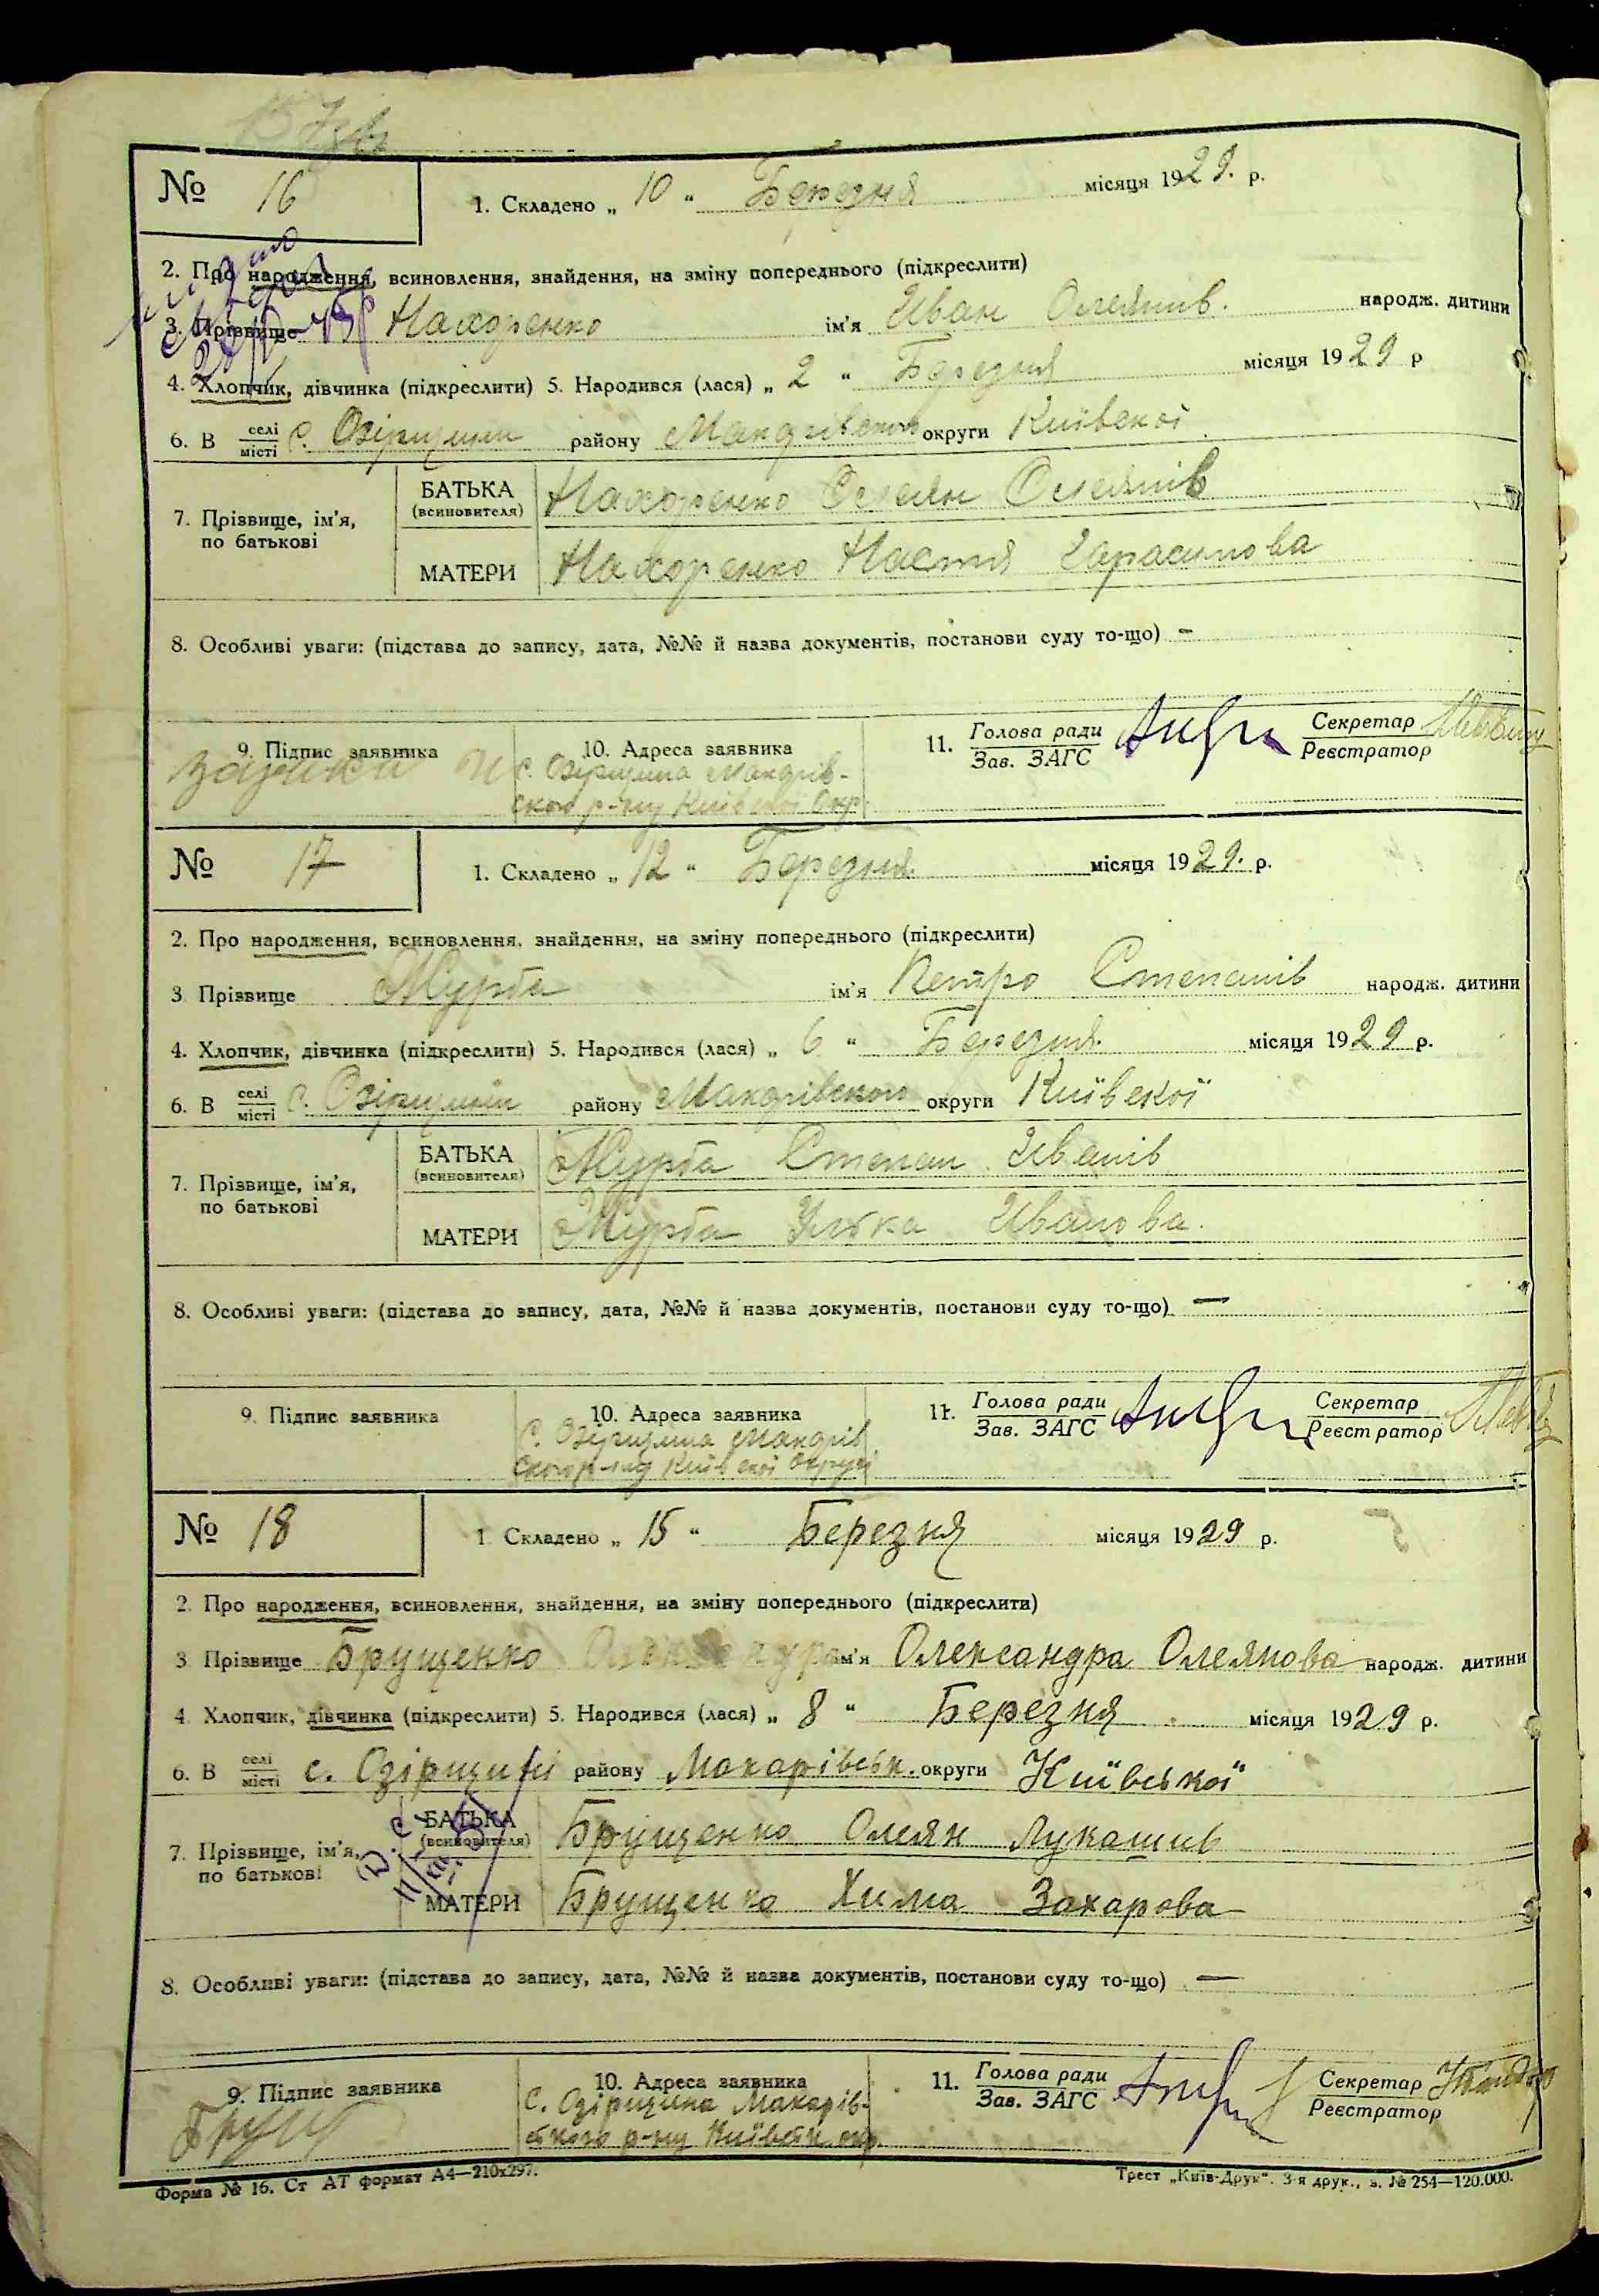 № 16
1. Складено „ 10 “ Березня місяця 1929. р.
2. Про народження, всиновлення, знайдення, на зміну попереднього (підкреслити)
3. Прізвище Нахоренко ім'я Иван Омелянив. народж. дитини
4. Хлопчик, дівчинка (підкреслити) 5. Народився (лася) „ 2 “ Березня місяця 1929 р
6. В селі/місті с. Озірщини району Макарівского округи Київскої
7. Прізвище, ім'я, по батькові
БАТЬКА (всиновителя) Нахоренко Омелян Омелянів
МАТЕРИ Нахоренко Настя Гарасимова
8. Особливі уваги: (підстава до запису, дата, №№ й назва документів, постанови суду то-що) -
9. Підпис заявника
10. Адреса заявника
с. Озірщина Макарів-
ского р-ну Київскої Окр.
11. Голова ради
Зав. ЗАГС
Секретар
Реєстратор
№ 17
1. Складено „ 12 “ Березня. місяця 1929. р.
2. Про народження, всиновлення, знайдення, на зміну попереднього (підкреслити)
3 Прізвище Журба ім'я Петро Степанів народж. дитини
4. Хлопчик, дівчинка (підкреслити) 5. Народився (лася) „ 6 “ Березня. місяця 1929 р.
6. В селі/місті с. Озірщини району Макарівского округи Київскої
7. Прізвище, ім'я, по батькові
БАТЬКА (всиновителя) Журба Степан Иванів
МАТЕРИ Журба Улька Иванова.
8. Особливі уваги: (підстава до запису, дата, №№ й назва документів, постанови суду то-що) —
9. Підпис заявника
10. Адреса заявника
С. Озірщина Макарів
ского р-ну Київскої Округи
11. Голова ради
Зав. ЗАГС
Секретар
Реєстратор
№ 18
1 Складено „ 15 “ Березня місяця 1929 р.
2. Про народження, всиновлення, знайдення, на зміну попереднього (підкреслити)
3 Прізвище Брущенко ім'я Олександра Омелянова народж. дитини
4 Хлопчик, дівчинка (підкреслити) 5. Народився (лася) „ 8 “ Березня місяця 1929 р.
6. В селі/місті с. Озірщині району Макарівськ. округи Київської
7. Прізвище, ім'я, по батькові
БАТЬКА (всиновителя) Брущенко Омелян Лукашив
МАТЕРИ Брущенко Хима Захарова
8. Особливі уваги: (підстава до запису, дата, №№ й назва документів, постанови суду то-що) —
9. Підпис заявника
10. Адреса заявника
С. Озірщина Макарів-
ского р-ну Київськ. окр.
11. Голова ради
Зав. ЗАГС
Секретар
Реєстратор
Форма № 16. Ст АТ формат А4—210х297.
Трест „Київ-Друк“. 3-я друк., з. № 254—120.000.